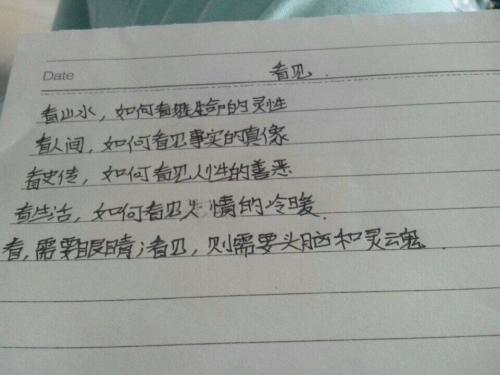 Date
看见.
看山水，如何看生命的灵性
看人间，如何看见事实的真像
看史传，如何看见人性的善恶
看生活，如何看见人情的冷暖.
看，需要眼睛；看见，则需要头脑和灵魂.